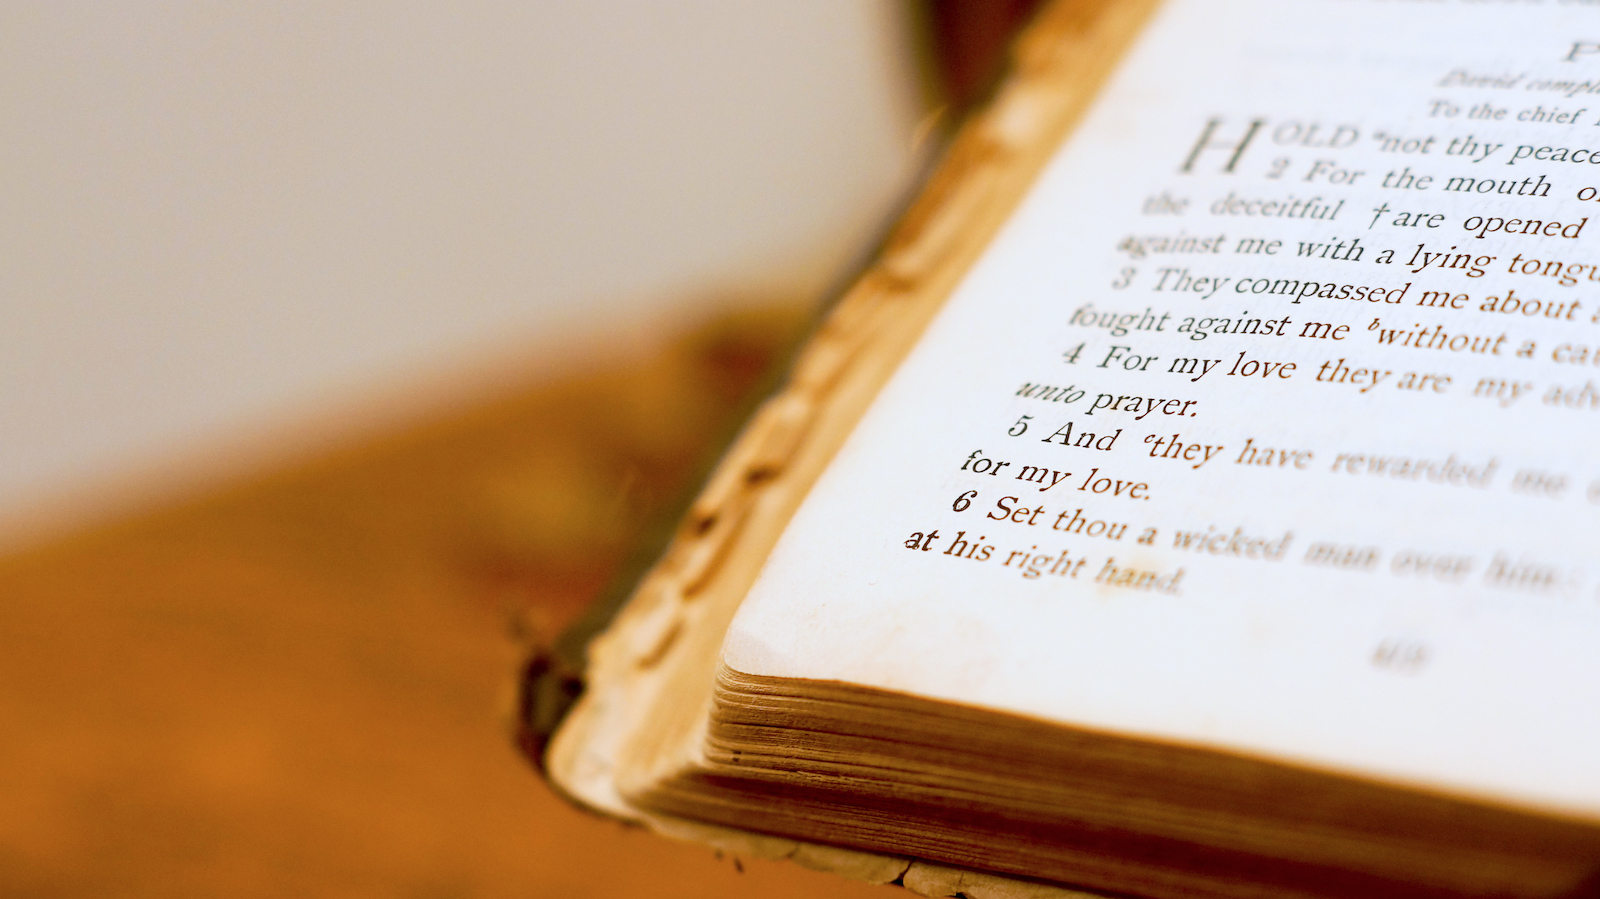 David
To the chief
HOLD ᵃnot thy peace
2 For the mouth
the deceitful †are opened
against me with a lying
3 They compassed me about
fought against me ᵇwithout a
4 For my love they are my
unto prayer.
5 And ᶜthey have rewarded me
for my love.
6 Set thou a wicked man over him
at his right hand.